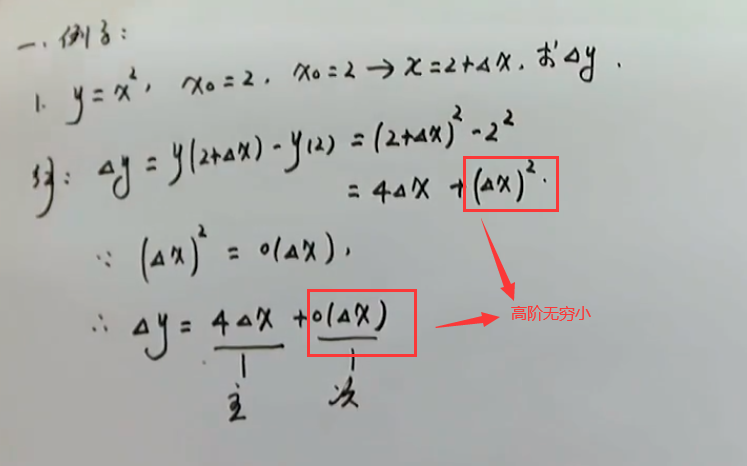 一、例子：
1. y=x², x₀=2, x₀=2→x=2+Δx, 求Δy.
解: Δy=y(2+Δx)-y(2)=(2+Δx)²-2²
=4Δx+(Δx)².
∵ (Δx)²=o(Δx),
高阶无穷小
∴ Δy=4Δx+o(Δx)
主 次